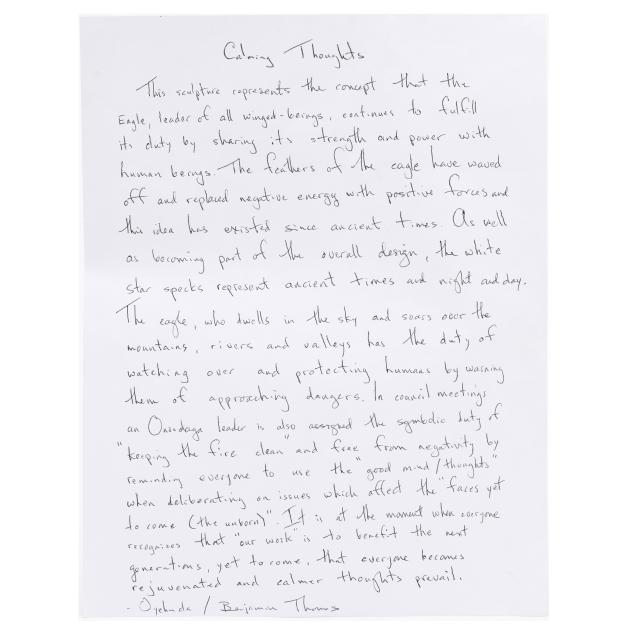 Calming Thoughts
This sculpture represents the concept that the
Eagle, leader of all winged-beings, continues to fulfill
its duty by sharing its strength and power with
human beings. The feathers of the eagle have waved
off and replaced negative energy with positive forces and
this idea has existed since ancient times. As well
as becoming part of the overall design, the white
star specks represent ancient times and night and day.
The eagle, who dwells in the sky and soars over the
mountains, rivers and valleys has the duty of
watching over and protecting humans by warning
them of approaching dangers. In council meetings
an Onondaga leader is also assigned the symbolic duty of
"keeping the fire clean" and free from negativity by
reminding everyone to use the "good mind/thoughts"
when deliberating on issues which affect the "faces yet
to come (the unborn)". It is at the moment when everyone
recognizes that "our work" is to benefit the next
generations, yet to come, that everyone becomes
rejuvenated and calmer thoughts prevail.
- / Benjamin Thomas